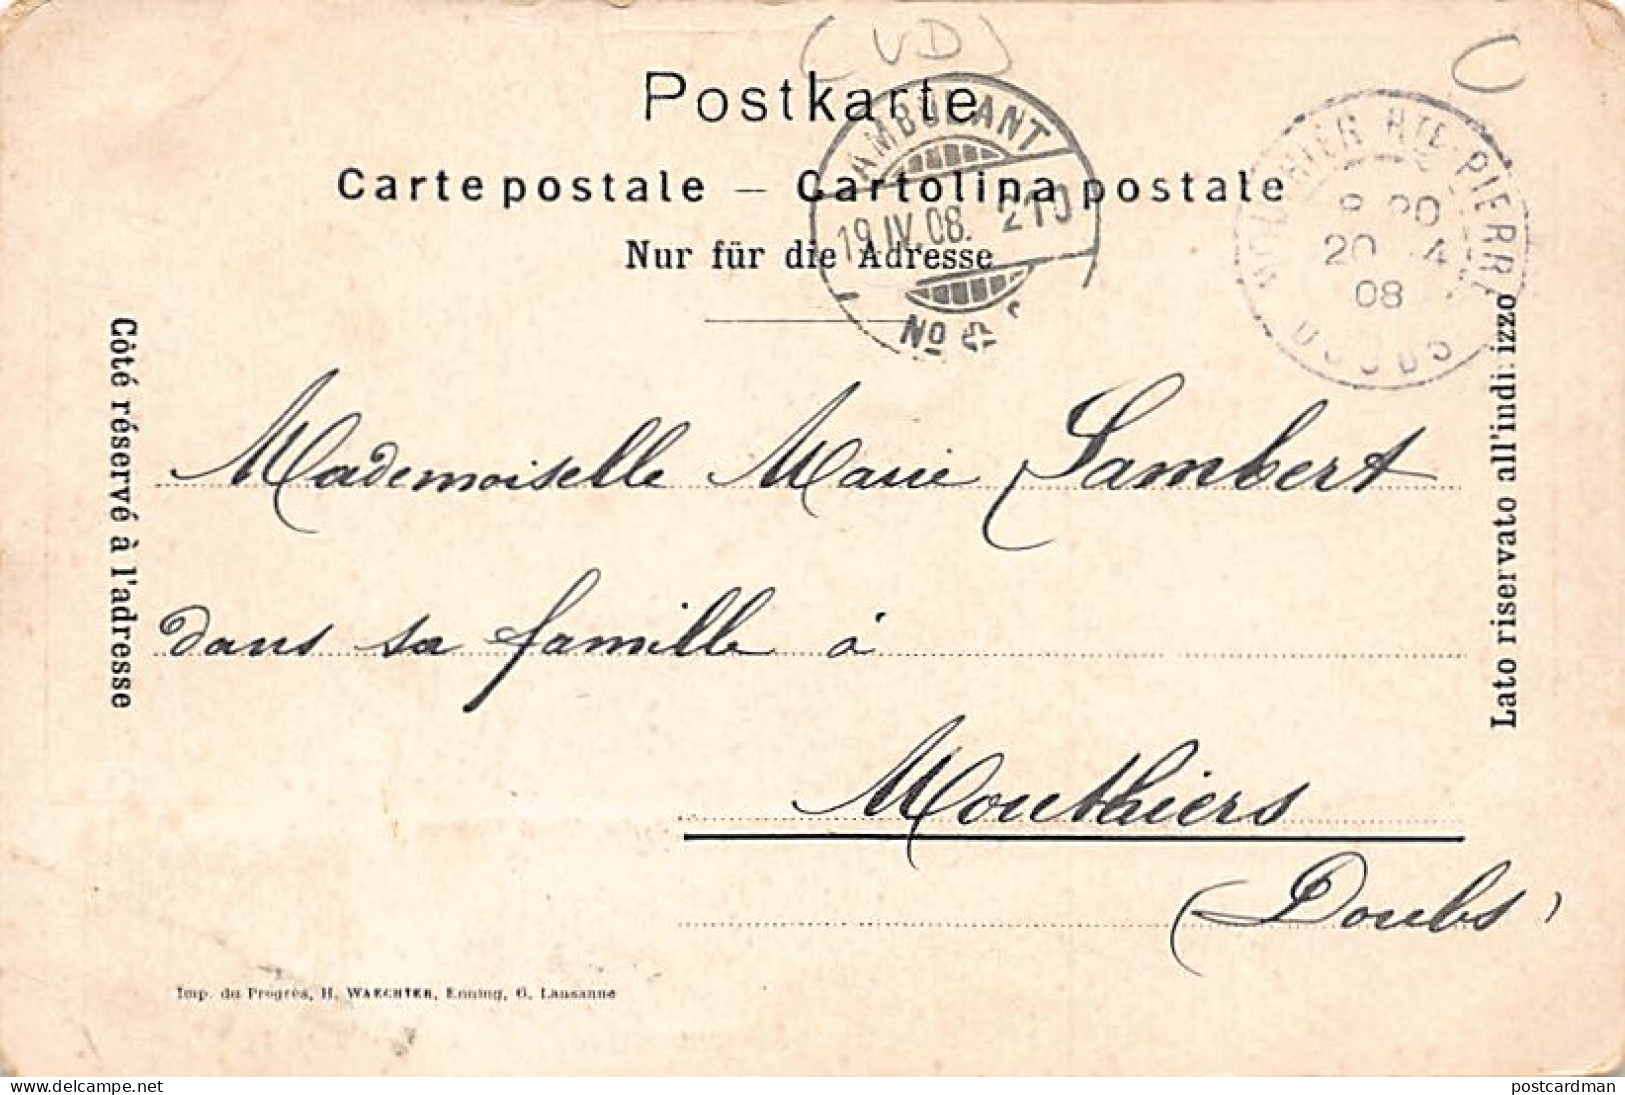 (VD)
Postkarte
Carte postale – Cartolina postale
Nur für die Adresse
AMBULANT
19.IV.08. 210
No
MOUTHIER HTE-PIERRE
8 20
20 4
08
DOUBS
Côté réservé à l'adresse
Mademoiselle Marie Lambert
dans sa famille à
Mouthiers
(Doubs)
Lato riservato all'indirizzo
Imp. du Progrès, H. WAECHTER, Enning, 6, Lausanne
www.delcampe.net
postcardman